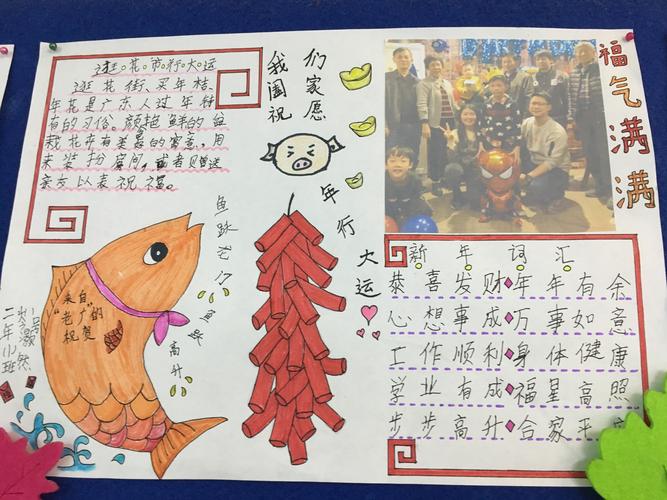 逛花市行大运
逛花街、买年桔、
年花是广东人过年特
有的习俗。颜艳鲜的盆
栽花卉有美意的寓意、用
来装扮房间，或者见面送
亲友以表祝福。
我们家愿
阖祝
年行大运
福气满满
鱼跃龙门
鱼跃高升
来自
"老广"的
祝贺
二年小班
新年词汇
恭喜发财 年年有余
心想事成 万事如意
工作顺利 身体健康
学业有成 福星高照
步步高升 合家平